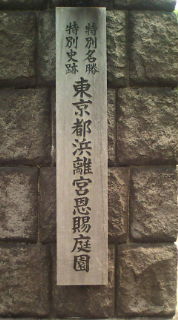 特別名勝
特別史跡
東京都浜離宮恩賜庭園